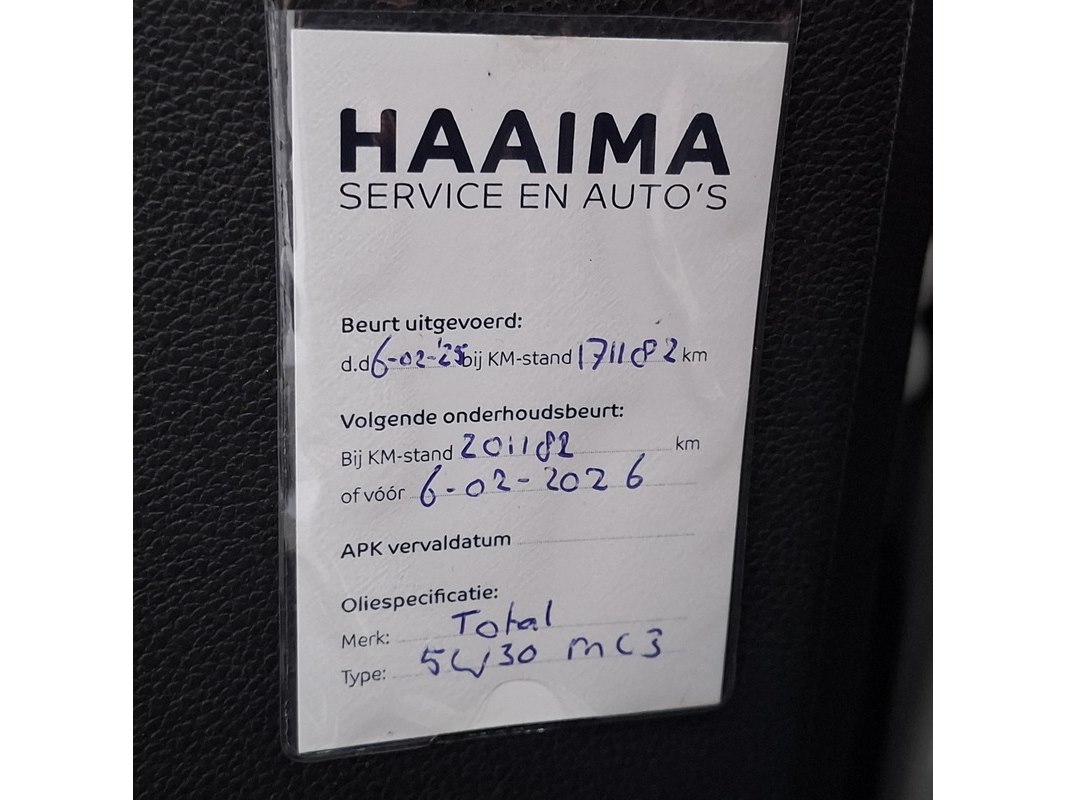 HAAIMA
SERVICE EN AUTO'S
Beurt uitgevoerd:
d.d 6-02-'25 bij KM-stand 171182 km
Volgende onderhoudsbeurt:
Bij KM-stand 201182 km
of vóór 6-02-2026
APK vervaldatum
Oliespecificatie:
Merk: Total
Type: 5W30 MC3